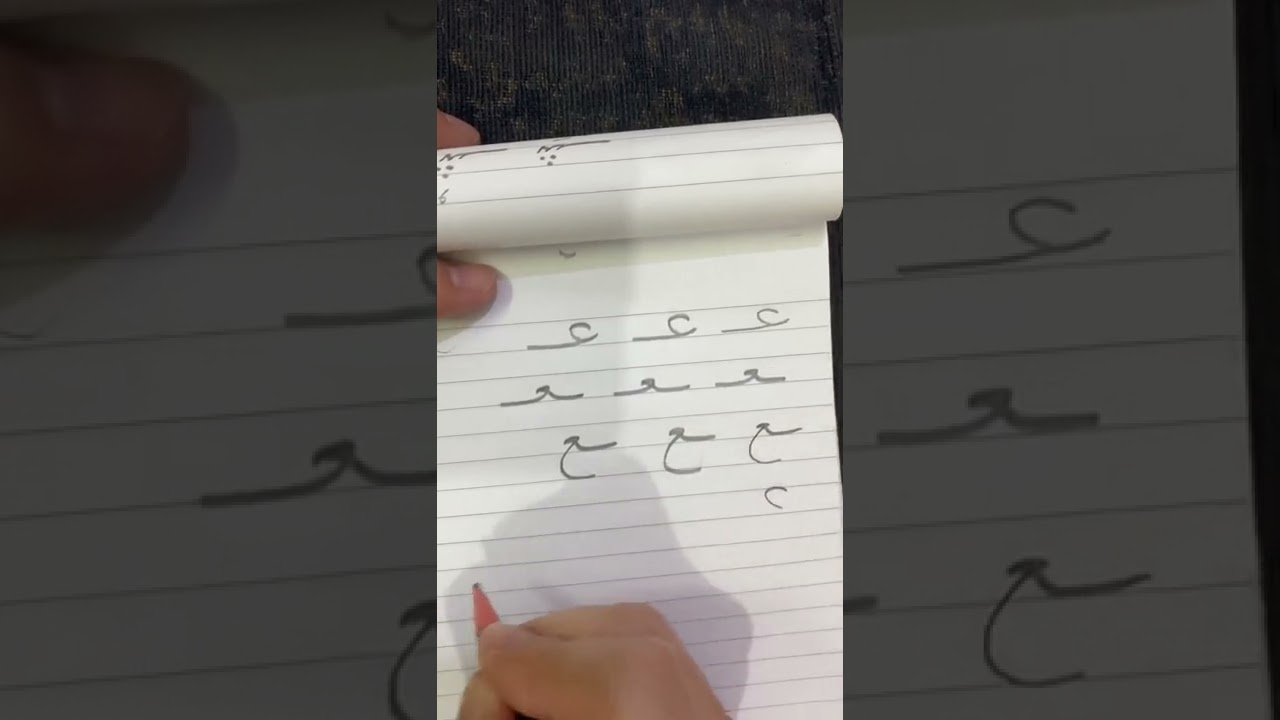 عـ عـ عـ
ـعـ ـعـ ـعـ
ـع ـع ـع